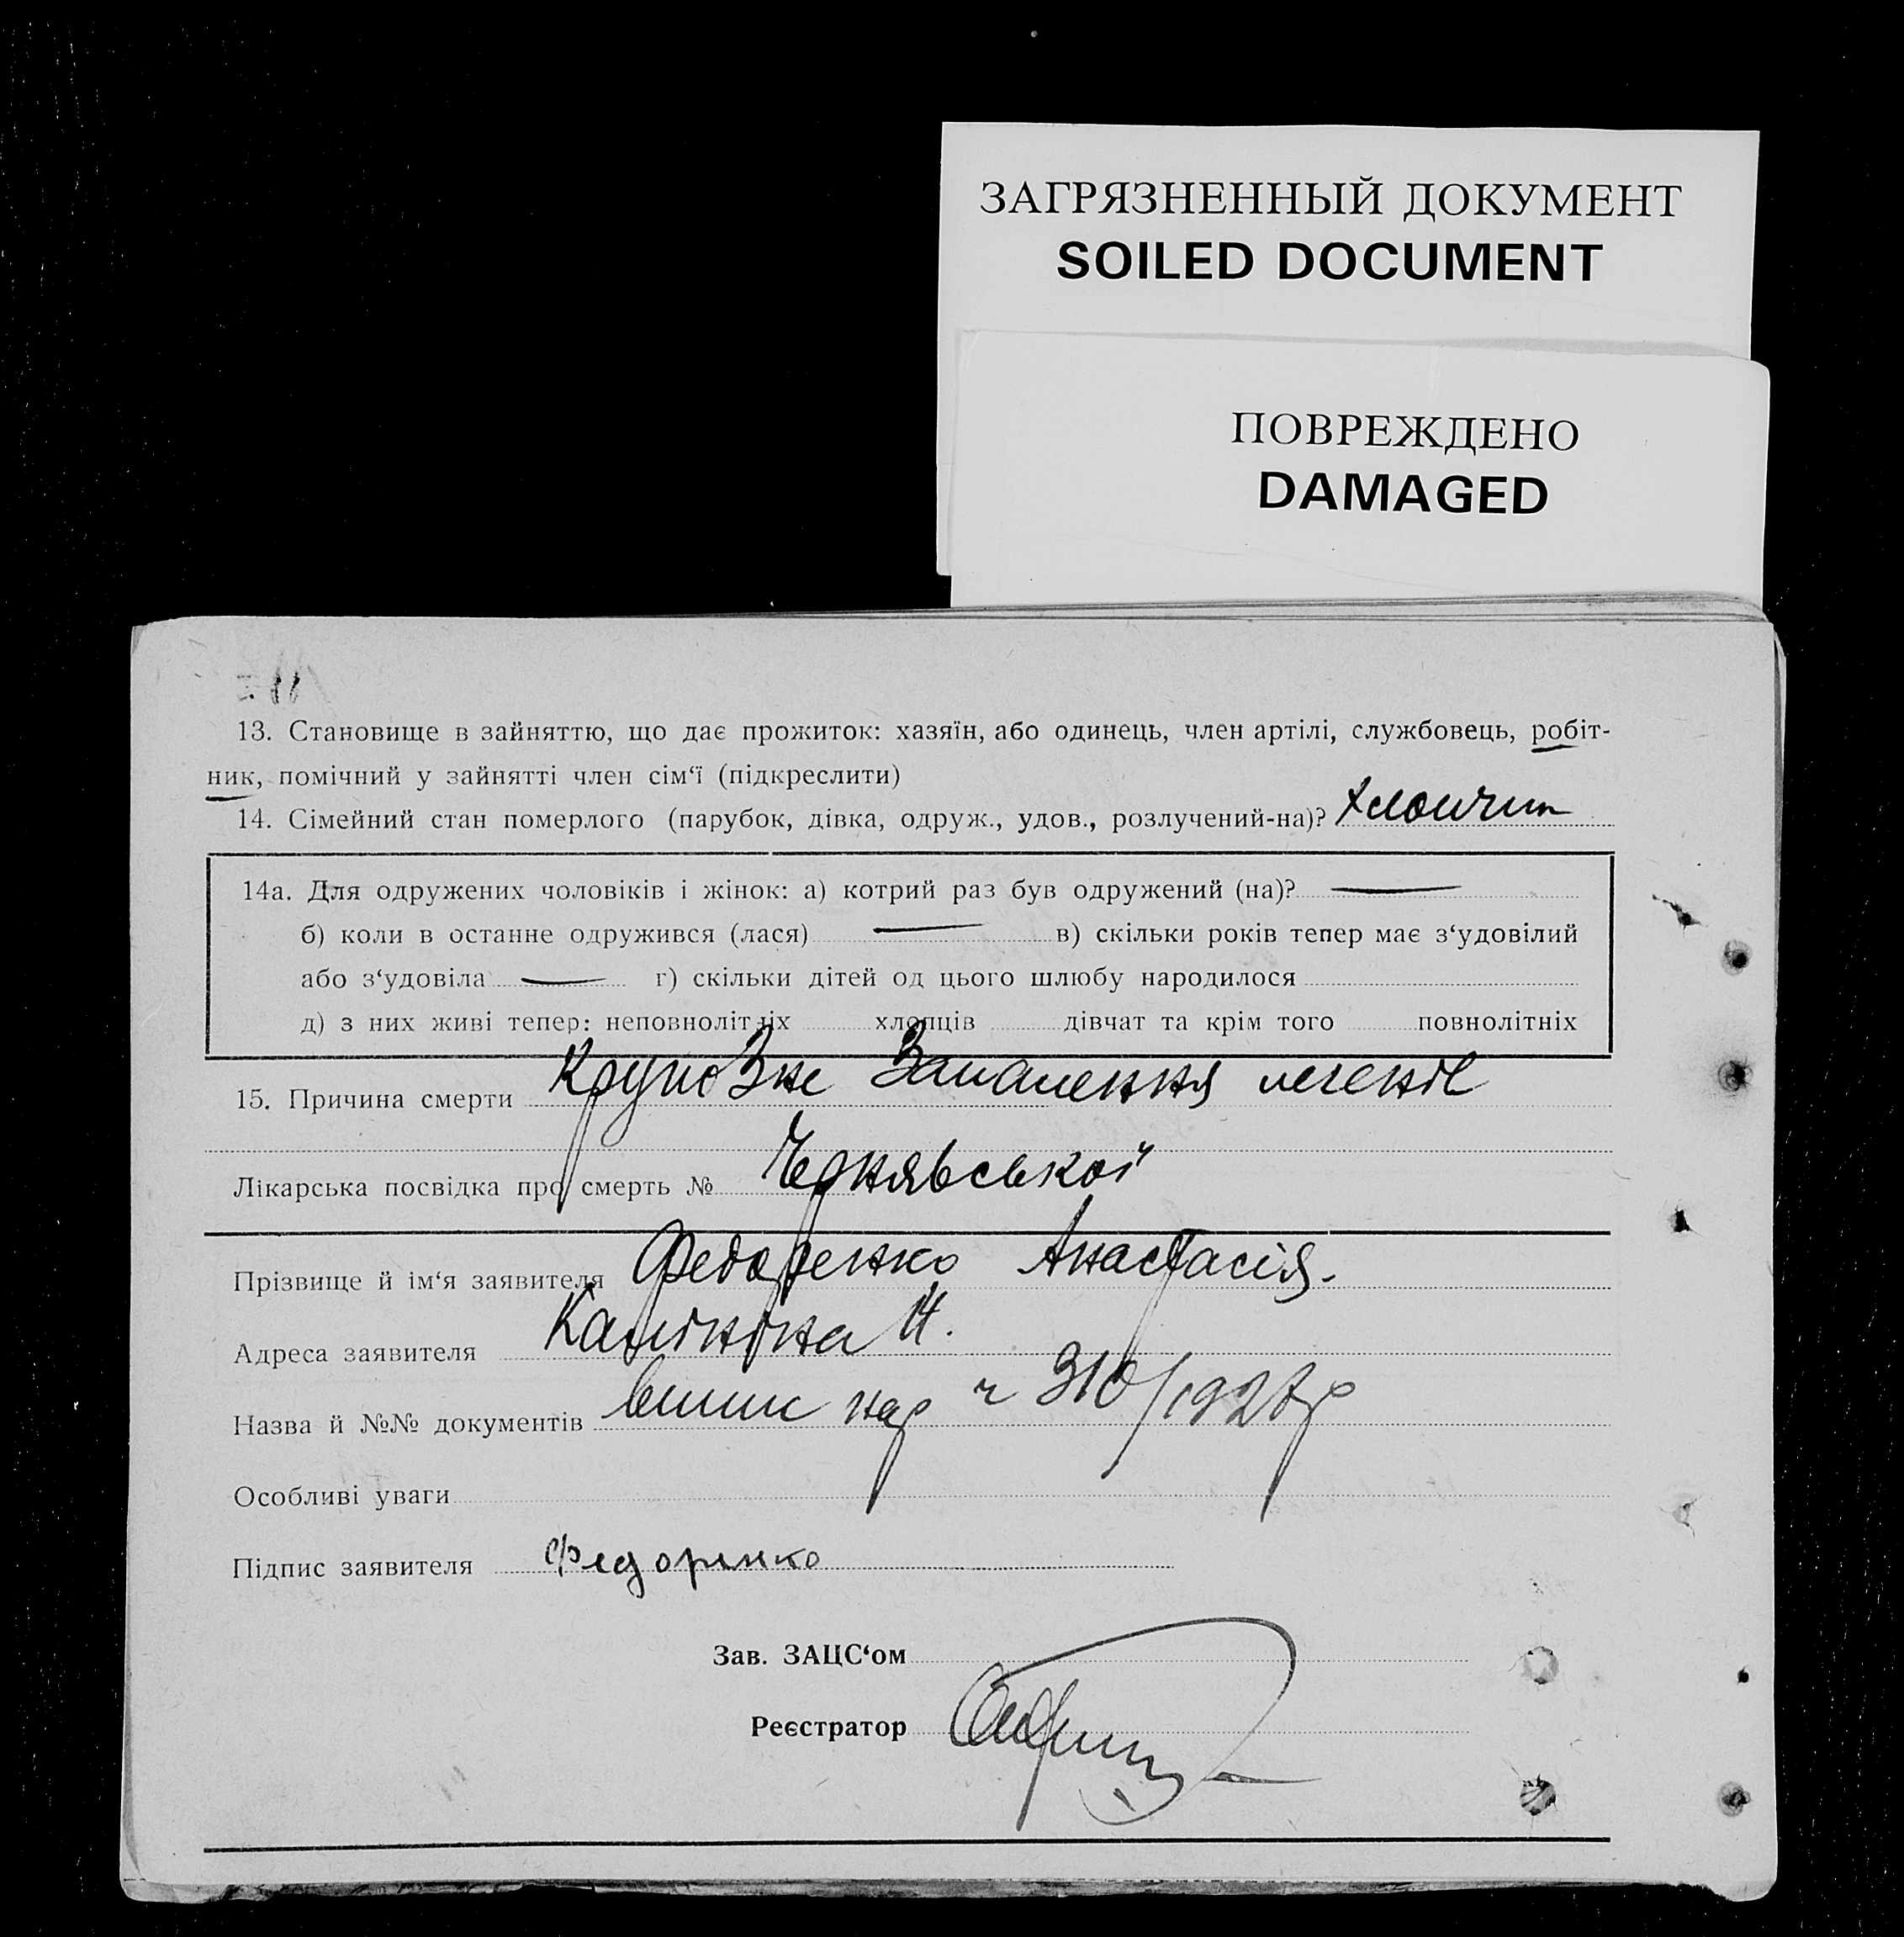 ЗАГРЯЗНЕННЫЙ ДОКУМЕНТ
SOILED DOCUMENT
ПОВРЕЖДЕНО
DAMAGED
13. Становище в зайняттю, що дає прожиток: хазяїн, або одинець, член артілі, службовець, робіт-
ник, помічний у зайнятті член сім‘ї (підкреслити)
14. Сімейний стан померлого (парубок, дівка, одруж., удов., розлучений-на)? хлопчик
14а. Для одружених чоловіків і жінок: а) котрий раз був одружений (на)? —
б) коли в останне одружився (лася) — в) скільки років тепер має з‘удовілий
або з‘удовіла — г) скільки дітей од цього шлюбу народилося
д) з них живі тепер: неповнолітніх хлопців дівчат та крім того повнолітніх
15. Причина смерти Крупозне Запалення легенів
Лікарська посвідка про смерть № Чернявської
Прізвище й ім‘я заявителя Федоренко Анастасія.
Адреса заявителя Калініна 14.
Назва й №№ документів випис нар ч 310/1927р
Особливі уваги
Підпис заявителя Федоренко
Зав. ЗАЦС‘ом
Реєстратор